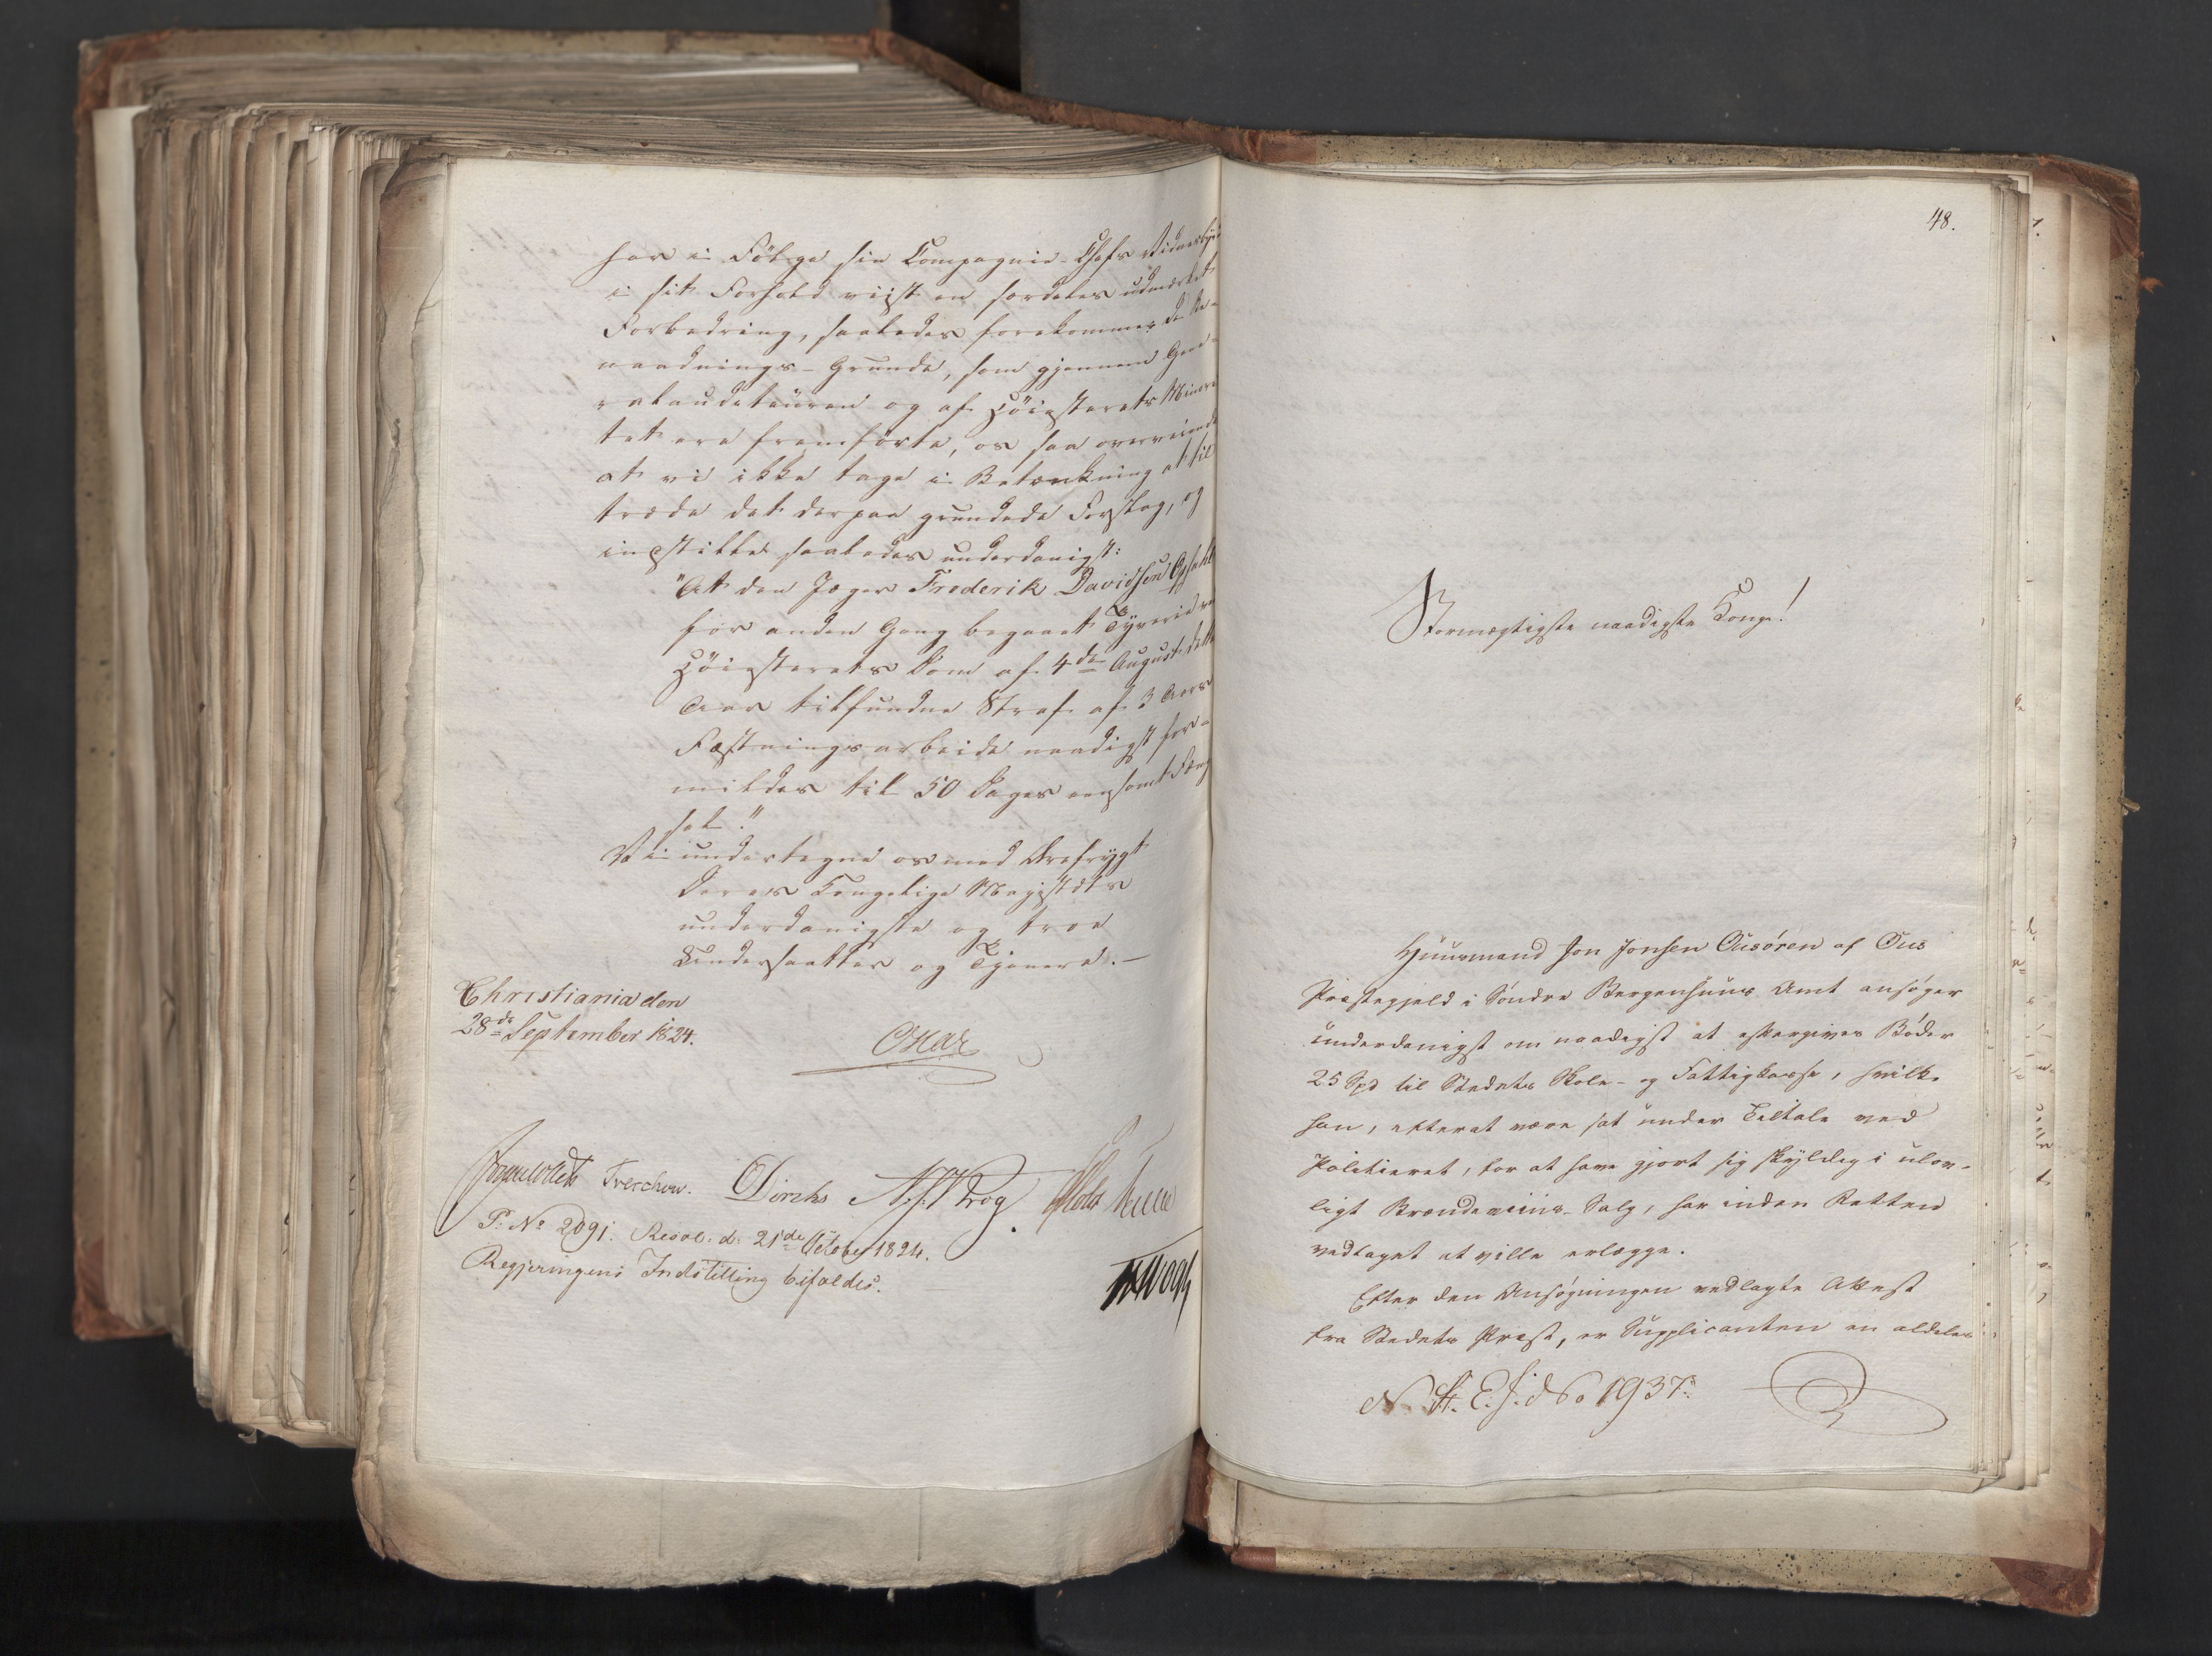 har i Følge sin Compagnie-Chefs Vidnesbyrd
i sit Forhold viist en særdeles udmærket
Forbedring, saaledes forekommer de Be-
naadnings-Grunde, som gjennem Gene-
ralauditeuren og af Høiesterets Minori
tet ere fremførte, os saa overveiende
at vi ikke tage i Betænkning at til
træde det derpaa grundede Forslag, og
indstille saaledes underdanigst:
"At den Jæger Frederik Davidsen
for anden Gang begaaet Tyverie ved
Høiesterets Dom af 4de August dette
Aar tilfundne Straf af 3 Aars
Fæstningsarbeide naadigst for-
mildes til 50 Dages eensomt Fæng
sel."
Vi undertegne os med Ærefrygt
Deres Kongelige Majestæts
underdanigste og troe
Undersaatter og Tjenere.—
Christiania den
28de September 1824.
Treschow. Diriks
P: No 2091. Resol. d: 21de October 1824.
Regjeringens Indstilling bifaldes.
48.
Stormægtigste naadigste Konge!
Huusmand Jon Jonsen Ousøren af Ous
Præstegjeld i Søndre Bergenhuus Amt ansøger
underdanigst om naadigst at eftergives Bøder
25 Spd til Stedets Skole- og Fattigkasse, hvilke
han, efterat være sat under Tiltale ved
Politieret, for at have gjort sig skyldig i ulov-
ligt Brændeviins-Salg, har inden Retten
vedtaget at ville erlægge.
Efter den Ansøgningen vedlagte Attest
fra Stedets Præst, er Supplicanten en aldeles
No 1937.